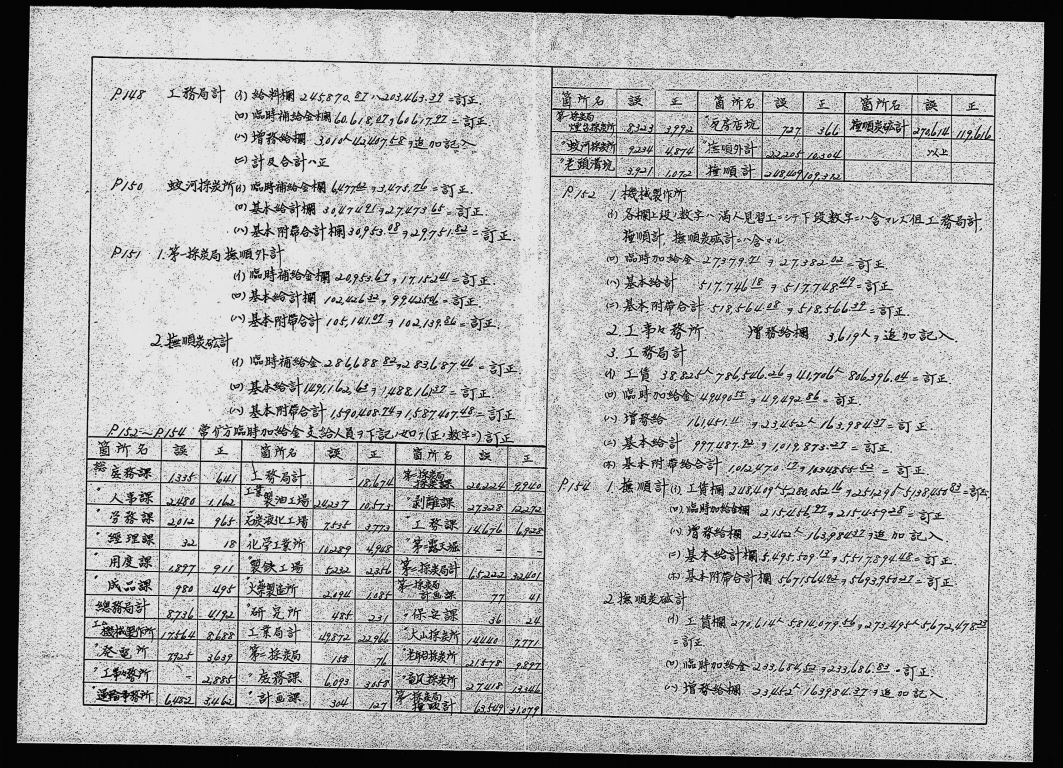 P148 工務局計 (イ) 給料欄 245,870.87 ハ 203,463.29 ニ訂正.
(ロ) 臨時補給金欄 60,618.07 ヲ 60,617.77 ニ訂正
(ハ) 増務給欄 3,010人 42,407.58 ヲ追加記入
(ニ) 計及合計ハ正
P150 蛟河採炭所 (イ) 臨時補給金欄 ヲ 3,475.76 ニ訂正.
(ロ) 基本給計欄 30,474.91 ヲ 27,473.65 ニ訂正.
(ハ) 基本附帯合計欄 30,953.08 ヲ 29,751.82 ニ訂正.
P151 1. 第一採炭局撫順外計
(イ) 臨時補給金欄 20,953.67 ヲ 17,152.41 ニ訂正
(ロ) 基本給計欄 ニ訂正.
(ハ) 基本附帯合計 105,141.07 ヲ 102,139.86 ニ訂正.
2. 撫順炭砿計
(イ) 臨時補給金 286,688.82 ヲ 283,687.46 ニ訂正
(ロ) 基本給計 1,491,162.63 ヲ 1,488,161.37 ニ訂正
(ハ) 基本附帯合計 1,590,408.74 ヲ 1,587,407.48 ニ訂正
P152〜P154 常傭方臨時加給金支給人員ヲ下記ノ如ク(正ノ数字ニ)訂正
箇所名 誤 正 箇所名 誤 正 箇所名 誤 正
庶務課 1335 641 工務局計 - 18,674 第一採炭局 採炭課 20,224 9,940
〃人事課 2480 1,162 工業局 製油工場 24237 10,573 〃剥離課 27,328 12,272
〃労務課 2,012 965 石炭液化工場 7,535 3,773 〃工務課 14,676 6,928
〃経理課 32 18 〃化学工業所 10,289 4,948 〃第二露天堀 - -
用度課 1,897 911 〃製鉄工場 5,232 2,356 第一採炭局計 65,222 32,401
〃成品課 980 495 〃火薬製造所 2,094 1,085 第二採炭局 計画課 77 41
総務局計 8736 4192 〃研究所 485 231 〃保安課 36 24
機械製作所 17,564 8,688 工業局計 49,872 22,966 〃大山採炭所 14440 7,771
〃発電所 7925 3639 第一採炭局 158 76 〃老虎台採炭所 21,578 9,897
〃工事々務所 - 2,885 〃庶務課 6,093 3,058 〃龍鳳採炭所 27,418 13,346
〃運輸事務所 6,482 3,462 〃計画課 304 127 第二採炭局 撫順計 63,549 31,079
箇所名 誤 正 箇所名 誤 正 箇所名 誤 正
第一採炭局 煙台採炭所 8,323 3,992 〃瓦房店坑 727 366 撫順炭砿計 270,614 119,616
〃蛟河採炭所 9,234 4,874 〃撫順外計 22,205 10,304 以上
〃老頭溝坑 3,921 1,072 撫順計 248,409 109,312
P152 1. 機械製作所
(イ) 各欄上段ノ数字ハ満人見習工ニシテ下段数字ニハ含マレズ但工務局計,
撫順計, 撫順炭砿計ニハ含マル
(ロ) 臨時加給金 27,379.71 ヲ 27,382.02 ニ訂正.
(ハ) 基本給計 517,746.18 ヲ 517,748.49 ニ訂正
(ニ) 基本附帯合計 518,564.08 ヲ 518,566.39 ニ訂正.
2. 工事々務所. 増務給欄 3,619人ヲ追加記入.
3. 工務局計
(イ) 工賃 38,825人 786,546.26 ヲ 41,706人 806,396.04 ニ訂正
(ロ) 臨時加給金 ヲ 49,492.86 ニ訂正.
(ハ) 増務給 ヲ 23,452人 163,984.37 ニ訂正.
(ニ) 基本給計 ヲ 1,019,873.27 ニ訂正
(ホ) 基本附帯給合計 ニ訂正.
P154 1. 撫順計 (イ) 工賃欄 ニ訂正
(ロ) 臨時加給金欄 ニ訂正
(ハ) 増務給欄 23,452人 163,984.37 ヲ追加記入.
(ニ) 基本給計欄 ニ訂正.
(ホ) 基本附帯合計欄 ニ訂正
2. 撫順炭砿計
(イ) 工賃欄 270,614人 5,814,079.56 ヲ 273,495人 5,672,478.23
ニ訂正
(ロ) 臨時加給金 233,684.52 ヲ 233,686.83 ニ訂正
(ハ) 増務給欄 23,452人 163,984.37 ヲ追加記入